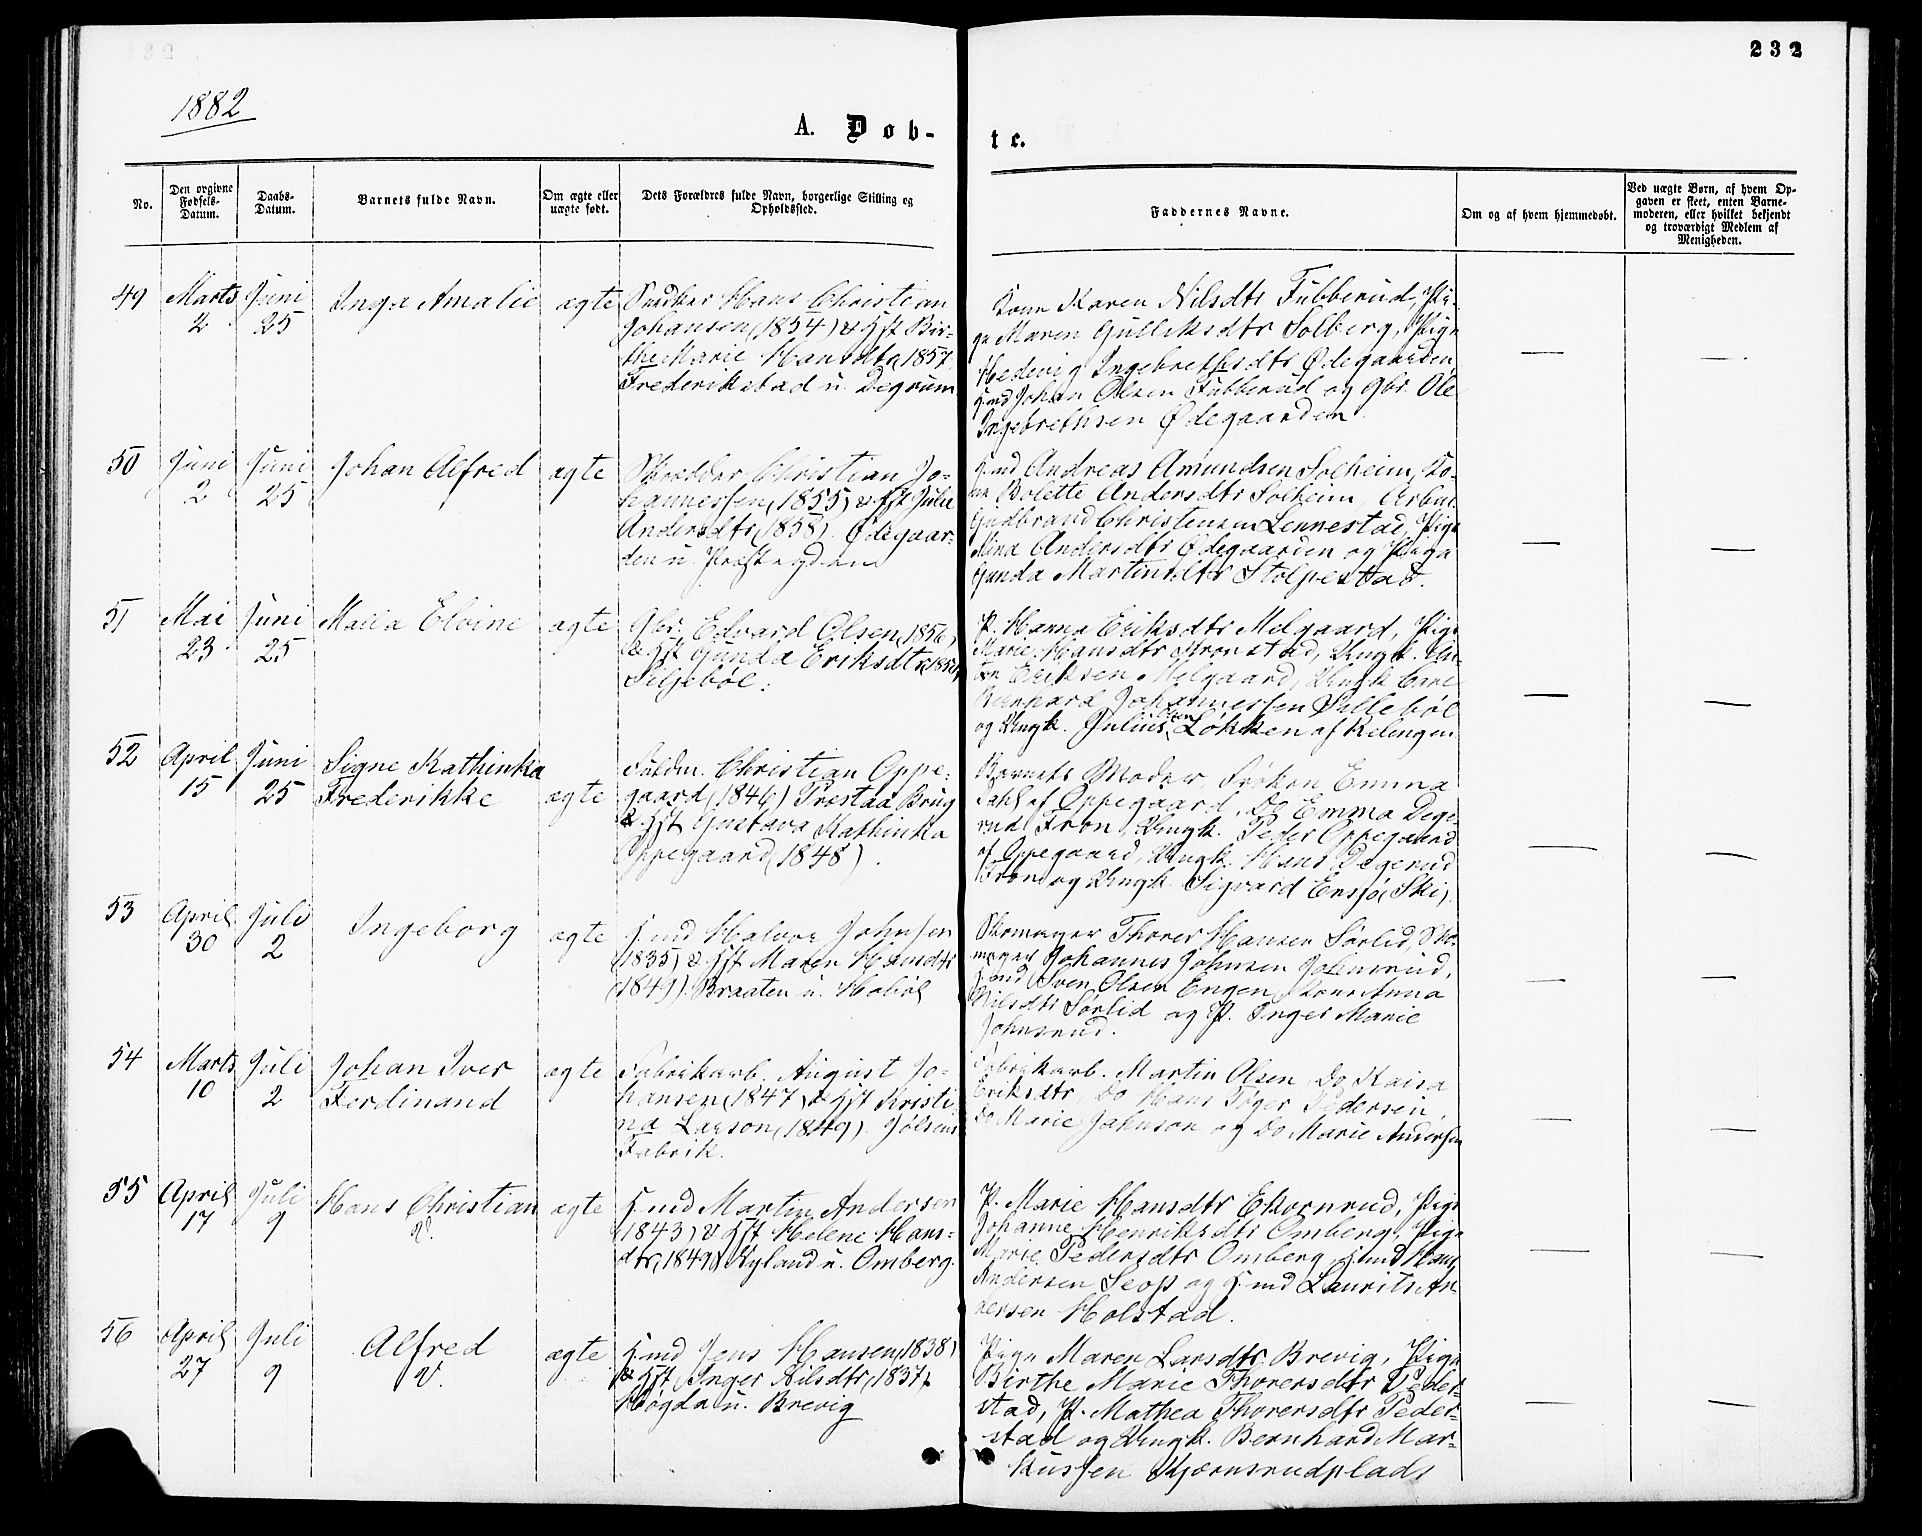 232
1882
A. Døb-
te.
No.
Den opgivne Fødsels-Datum.
Daabs-Datum.
Barnets fulde Navn.
Om ægte eller uægte født.
Dets Forældres fulde Navn, borgerlige Stilling og Opholdssted.
Faddernes Navne.
Om og af hvem hjemmedøbt.
Ved uægte Børn, af hvem Op-
gaven er skeet, enten Barne-
moderen, eller hvilket bekjendt
og troværdigt Medlem af
Menigheden.
49 Marts 2 Juni 25 Inga Amalie ægte
Snedker Hans Christian
Johansen (1854) & Hst Bir-
the Marie Hansdtr (1857
Frederikstad u. Degrum
Kone Karen Nilsdtr Fubberud, Pi-
ge Maren Gulliksdtr Solberg, Pige
Hedevig Ingebrethsdtr Ødegaarden,
Hmd Johan Olsen Fubberud og Gbr. Ole
Ingebrethsen Ødegaarden.
50 Juni 2 Juni 25 Johan Alfred ægte
Skrædder Christian Jo-
hannessen (1855) & Hst Julie
Andersdtr (1858). Ødegaar-
den u. Præstegden
Hmd Andreas Amundsen Solheim, Ko-
ne Bolette Andersdtr Solheim, Arbm.
Gudbrand Christensen Lennestad, Pige
Mina Andersdtr Ødegaarden og Pige
Gunda Martinsdtr Stolpestad.
51 Mai 23 Juni 25 Maila Elvine ægte
Gbr. Edvard Olsen (1856)
& Hst Gunda Eriksdtr (185
Siljebøl.
P. Hanna Eriksdtr Melgaard, Pige
Marie Hansdtr Kronstad, Ungk.
Eriksen Melgaard, Ungk Carl
Bernhard Johannessen Sillebøl
og Ungk. Julius Olsen Løkken af Relingen
52 April 15 Juni 25 Signe Kathinka
Frederikke ægte
Fuldm. Christian Oppe-
gaard (1846) Præstaa Brug
& Hst Gustava Kathinka
Oppegaard (1848).
Barnets Moder, Frøken Emma
Dahl af Oppegaard, Do Emma Dege-
rud Fron, Ungk. Peder Oppegaard
af Oppegaard, Ungk. Hans Degerud
Fron og Ungk. Sigvard Ensjø (Ski).
53 April 30 Juli 2 Ingeborg ægte
Hmd Halvor Johnsen
(1835) & Hst Maren Hansdtr
(1849). Braaten u. Habøl
Skomager Thorer Hansen Sørlid, Sko-
mager Johannes Johnsen Johnsrud,
Hmd Sven Olsen Engen, Kone Anna
Nilsdtr Sørlid og P. Inger Marie
Johnsrud.
54 Marts 10 Juli 2 Johan Iver
Ferdinand ægte
Fabrikarb. August Jo-
hansen (1847) & Hst Kristi-
na Larson (1849). Jølsens
Fabrik.
Fabrikarb. Martin Olsen, Do Kaisa
Eriksdtr, Do Hans Tøger Pedersen,
Do Marie Johnson og Do Marie Andersen
55 April 17 Juli 9 Hans Christian
V. ægte
Hmd Martin Andersen
(1843) & Hst Helene Hans-
dtr (1849) Nyland u. Omberg.
P. Marie Hansdtr Ekornrud, Pige
Johanne Henriksdtr Omberg, Pige
Marie Pedersdtr Omberg, Hmd Hans
Andersen Seop og Hmd Laurits An-
dersen Holstad.
56 April 27 Juli 9 Alfred
V. ægte
Hmd Jens Hansen (1838)
& Hst Inger Nilsdtr (1837).
Høgda u. Brevig
Pige Maren Larsdtr Brevig, Pige
Birthe Marie Thorersdtr Peder-
stad, P. Mathea Thorersdtr Peder-
stad og Ungk. Bernhard Mar-
kussen Kjærnsrudplads